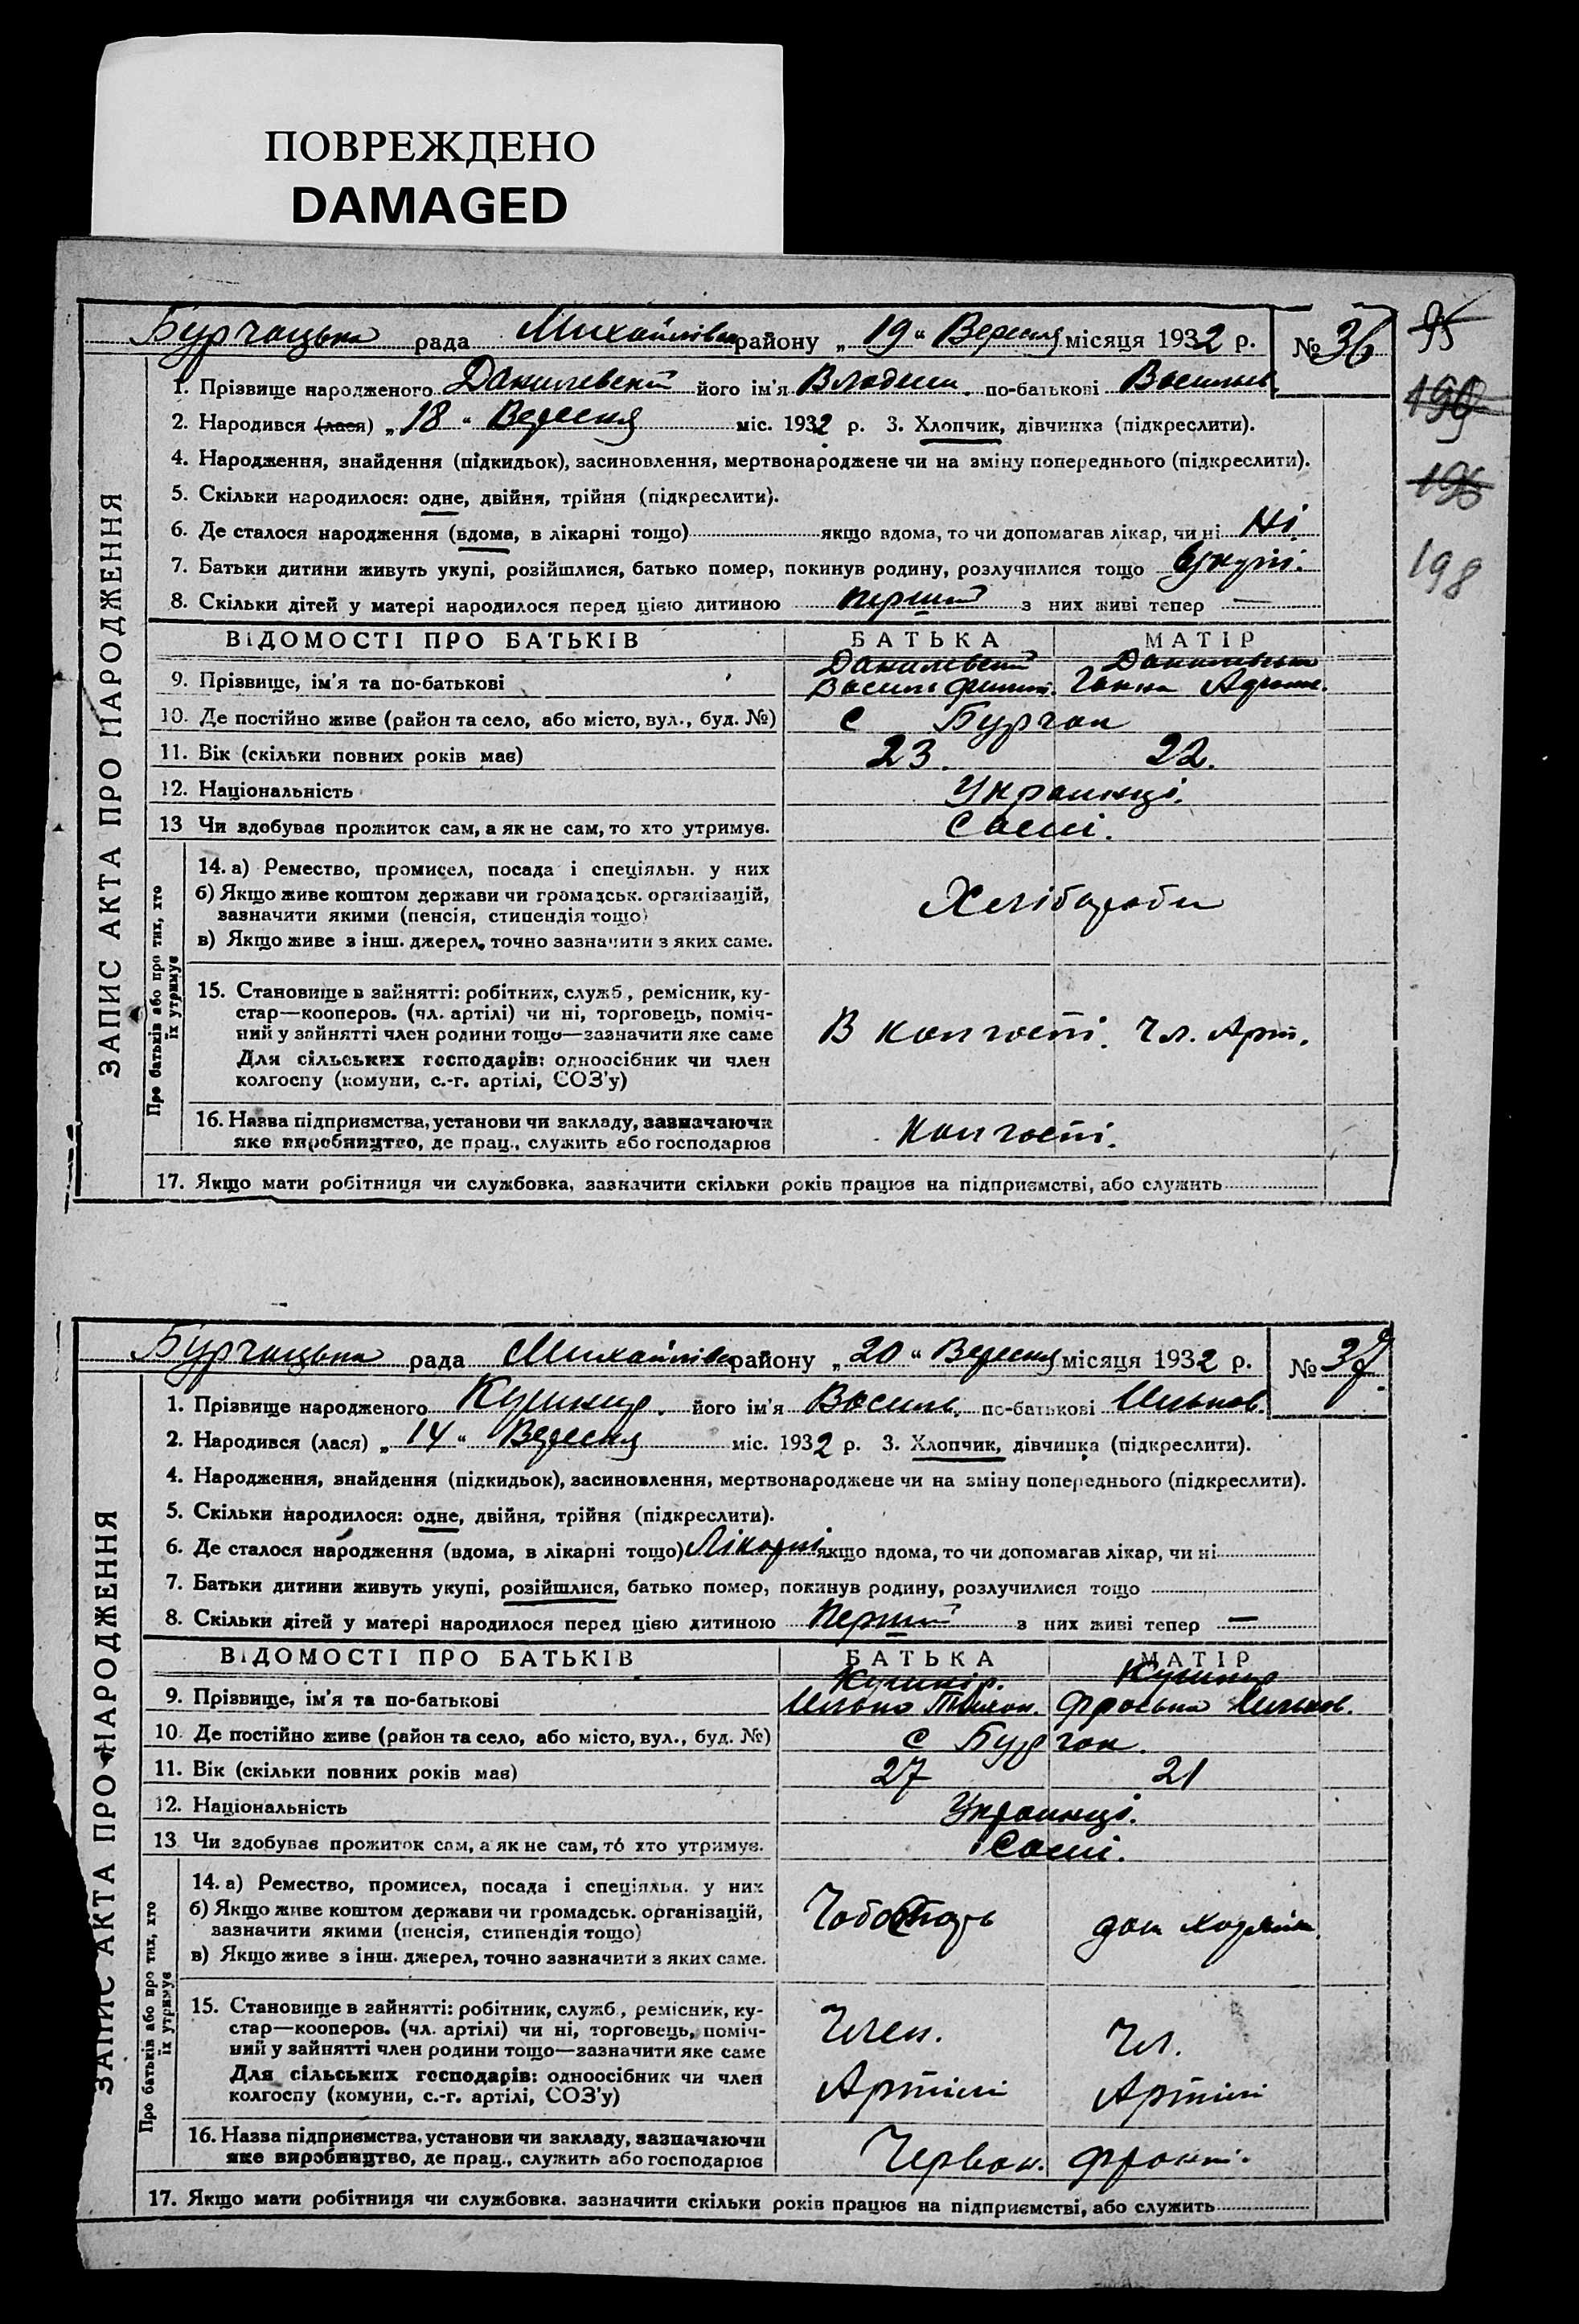 ПОВРЕЖДЕНО
DAMAGED
Бурчацька рада Михайлівськ району „ 19 " Вересня місяця 1932 р. № 36
95
190
196
198
ЗАПИС АКТА ПРО НАРОДЖЕННЯ
1. Прізвище народженого Данилевский його ім'я по-батькові Васильев.
2. Народився (лася) „ 18 " Вересня міс. 1932 р. 3. Хлопчик, дівчинка (підкреслити).
4. Народження, знайдення (підкидьок), засиновлення, мертвонароджене чи на зміну попереднього (підкреслити).
5. Скільки народилося: одне, двійня, трійня (підкреслити).
6. Де сталося народження (вдома, в лікарні тощо) якщо вдома, то чи допомагав лікар, чи ні Ні
7. Батьки дитини живуть укупі, розійшлися, батько помер, покинув родину, розлучилися тощо вкупі.
8. Скільки дітей у матері народилося перед цією дитиною перший з них живі тепер —
ВІДОМОСТІ ПРО БАТЬКІВ БАТЬКА МАТІР
Данилевский Данилевська
9. Прізвище, ім'я та по-батькові Василь Ганна
10. Де постійно живе (район та село, або місто, вул., буд. №) С Бурчак
11. Вік (скільки повних років має) 23. 22.
12. Національність Украинці.
13 Чи здобуває прожиток сам, а як не сам, то хто утримує. Самі.
Про батьків або про тих, хто їх утримує
14. а) Ремество, промисел, посада і спеціяльн. у них
б) Якщо живе коштом держави чи громадськ. організацій,
зазначити якими (пенсія, стипендія тощо)
Хлібороби
в) Якщо живе з інш. джерел, точно зазначити з яких саме.
15. Становище в зайнятті: робітник, служб., ремісник, ку-
стар—кооперов. (чл. артілі) чи ні, торговець, поміч-
ний у зайнятті член родини тощо—зазначити яке саме
В колгоспі. Чл. Арт.
Для сільських господарів: одноосібник чи член
колгоспу (комуни, с.-г. артілі, СОЗ'у)
16. Назва підприємства, установи чи закладу, зазначаючи
яке виробництво, де прац., служить або господарює
Колгоспі.
17. Якщо мати робітниця чи службовка, зазначити скільки років працює на підприємстві, або служить
Бурчацька рада Михайлівськ району „ 20 " Вересня місяця 1932 р. № 37
ЗАПИС АКТА ПРО НАРОДЖЕННЯ
1. Прізвище народженого Кушнир. його ім'я Василь. по-батькові Ильков.
2. Народився (лася) „ 14 " Вересня міс. 1932 р. 3. Хлопчик, дівчинка (підкреслити).
4. Народження, знайдення (підкидьок), засиновлення, мертвонароджене чи на зміну попереднього (підкреслити).
5. Скільки народилося: одне, двійня, трійня (підкреслити).
6. Де сталося народження (вдома, в лікарні тощо) Лікарні якщо вдома, то чи допомагав лікар, чи ні
7. Батьки дитини живуть укупі, розійшлися, батько помер, покинув родину, розлучилися тощо
8. Скільки дітей у матері народилося перед цією дитиною перший з них живі тепер —
ВІДОМОСТІ ПРО БАТЬКІВ БАТЬКА МАТІР
Кушнір. Кушнир
9. Прізвище, ім'я та по-батькові Илько Фроська Ильков.
10. Де постійно живе (район та село, або місто, вул., буд. №) С Бурчак.
11. Вік (скільки повних років має) 27 21
12. Національність Украинці.
13 Чи здобуває прожиток сам, а як не сам, то хто утримує. Самі.
Про батьків або про тих, хто їх утримує
14. а) Ремество, промисел, посада і спеціяльн. у них
б) Якщо живе коштом держави чи громадськ. організацій,
зазначити якими (пенсія, стипендія тощо)
дом
в) Якщо живе з інш. джерел, точно зазначити з яких саме.
15. Становище в зайнятті: робітник, служб., ремісник, ку-
стар—кооперов. (чл. артілі) чи ні, торговець, поміч-
ний у зайнятті член родини тощо—зазначити яке саме
Член. Чл.
Для сільських господарів: одноосібник чи член
колгоспу (комуни, с.-г. артілі, СОЗ'у)
Артілі Артілі
16. Назва підприємства, установи чи закладу, зазначаючи
яке виробництво, де прац., служить або господарює
Червон. Фронт.
17. Якщо мати робітниця чи службовка, зазначити скільки років працює на підприємстві, або служить